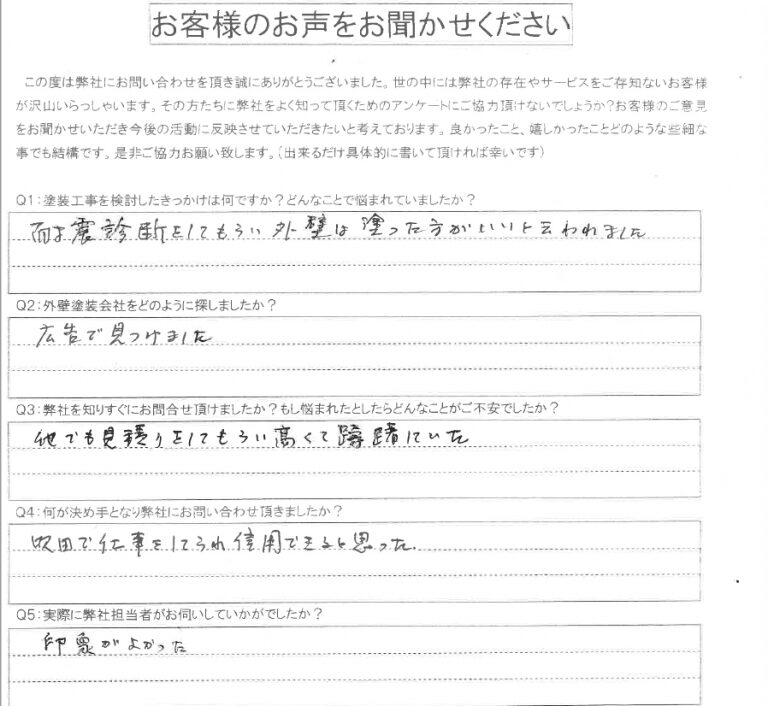 お客様のお声をお聞かせください
この度は弊社にお問い合わせを頂き誠にありがとうございました。世の中には弊社の存在やサービスをご存知ないお客様
が沢山いらっしゃいます。その方たちに弊社をよく知って頂くためのアンケートにご協力頂けないでしょうか?お客様のご意見
をお聞かせいただき今後の活動に反映させていただきたいと考えております。良かったこと、嬉しかったことどのような些細な
事でも結構です。是非ご協力お願い致します。(出来るだけ具体的に書いて頂ければ幸いです)
Q1:塗装工事を検討したきっかけは何ですか?どんなことで悩まれていましたか?
耐震診断をしてもらい外壁は塗った方がいいと云われました
Q2:外壁塗装会社をどのように探しましたか?
広告で見つけました
Q3:弊社を知りすぐにお問合せ頂けましたか?もし悩まれたとしたらどんなことがご不安でしたか?
他でも見積りをしてもらい高くて躊躇していた
Q4:何が決め手となり弊社にお問い合わせ頂きましたか?
吹田で仕事をしてられ信用できると思った.
Q5:実際に弊社担当者がお伺いしていかがでしたか?
印象がよかった